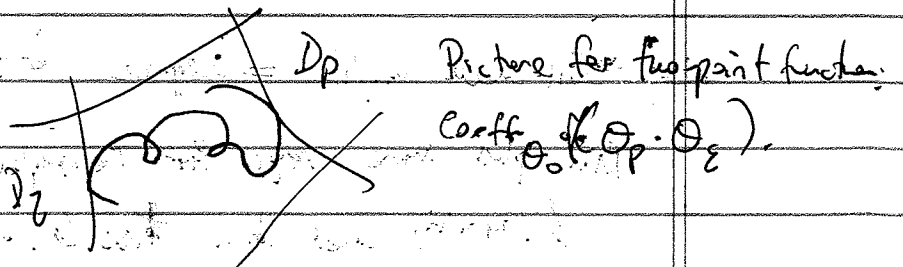 D_p Picture for two-point function.
Coeff_{θ_0} (θ_p · θ_q).
D_q